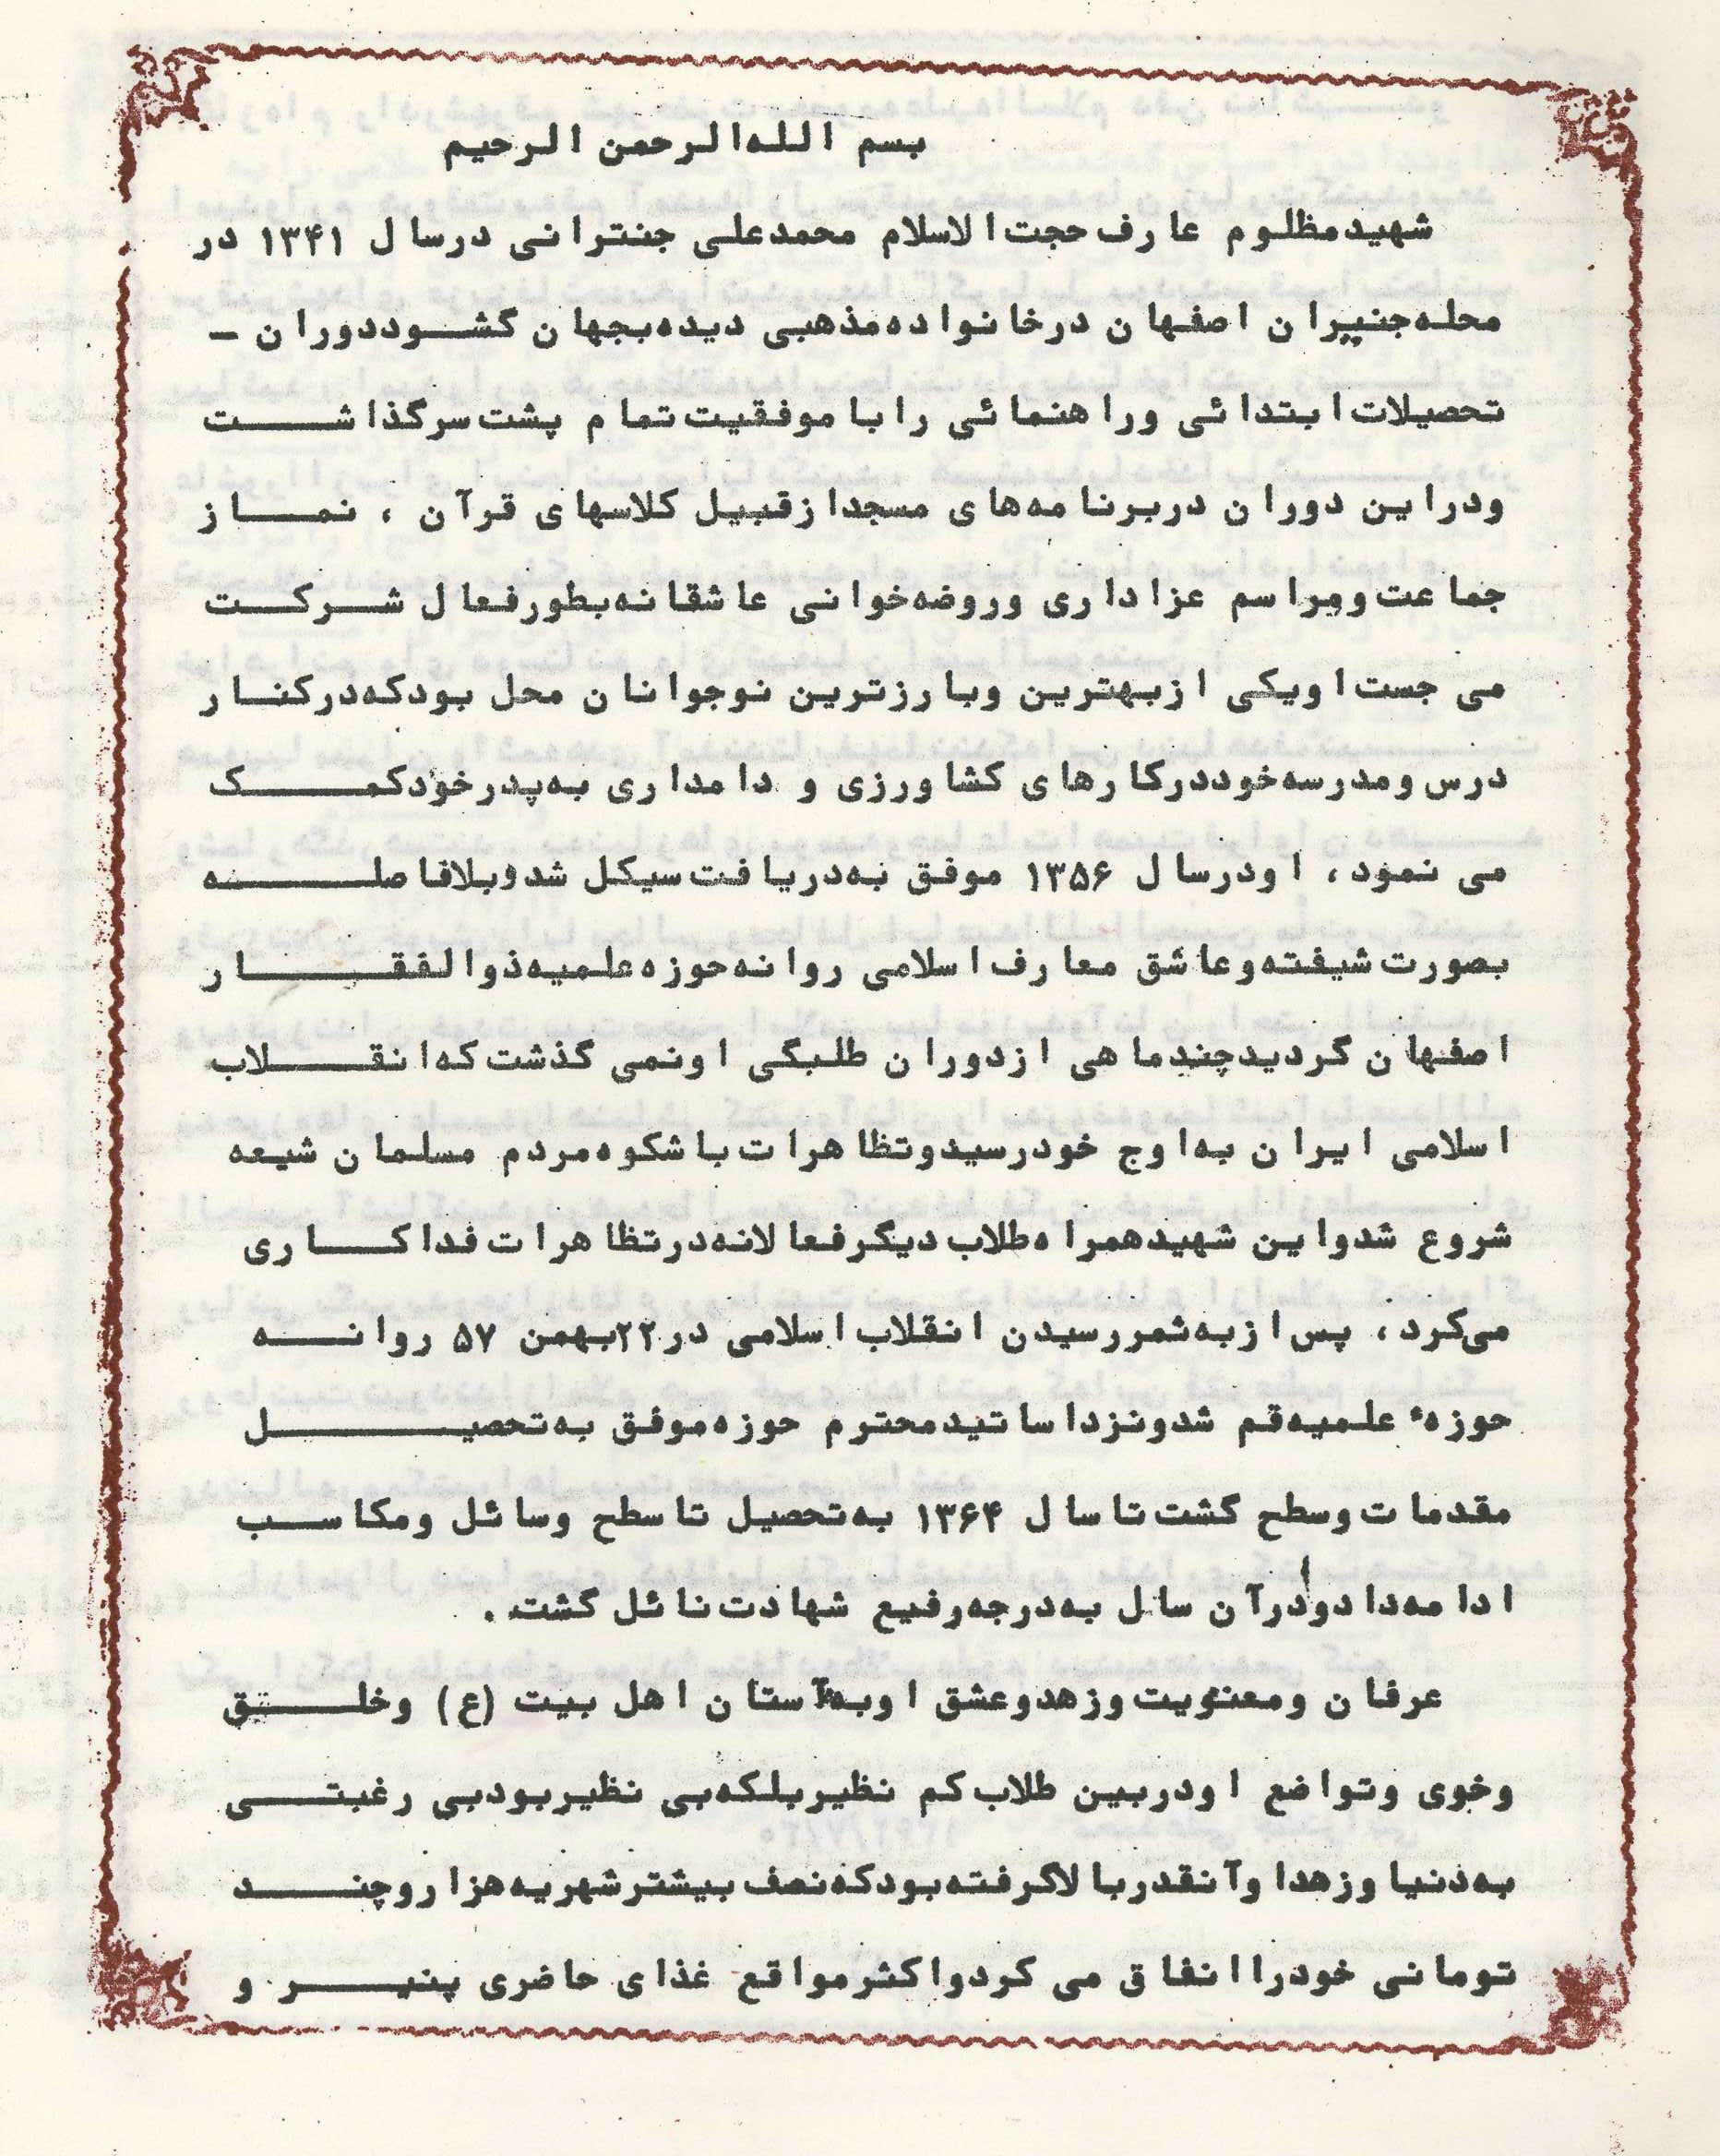 بسم الله الرحمن الرحیم
شهید مظلوم عارف حجت الاسلام محمدعلی جنترانی درسال ۱۳۴۱ در
محله جنیران اصفهان درخانواده مذهبی دیده بجهان گشود دوران -
تحصیلات ابتدائی وراهنمائی را با موفقیت تمام پشت سرگذاشت
ودراین دوران دربرنامه های مسجد ازقبیل کلاسهای قرآن ، نماز
جماعت ومراسم عزاداری وروضه خوانی عاشقانه بطورفعال شرکت
می جست اویکی ازبهترین وبارزترین نوجوانان محل بودکه درکنار
درس ومدرسه خود درکارهای کشاورزی و دامداری به پدرخودکمک
می نمود، اودرسال ۱۳۵۶ موفق به دریافت سیکل شد وبلافاصله
بصورت شیفته وعاشق معارف اسلامی روانه حوزه علمیه ذوالفقار
اصفهان گردید چندماهی ازدوران طلبگی اونمی گذشت که انقلاب
اسلامی ایران به اوج خودرسید وتظاهرات باشکوه مردم مسلمان شیعه
شروع شد واین شهید همراه طلاب دیگر فعالانه درتظاهرات فداکاری
می‌کرد، پس ازبه ثمررسیدن انقلاب اسلامی در۲۲بهمن ۵۷ روانه
حوزهٔ علمیه قم شد ونزد اساتید محترم حوزه موفق به تحصیل
مقدمات وسطح گشت تا سال ۱۳۶۴ به تحصیل تا سطح وسائل ومکاسب
ادامه داد ودرآن سال به درجه رفیع شهادت نائل گشت .
عرفان ومعنویت وزهد وعشق او به آستان اهل بیت (ع) وخلق
وخوی وتواضع اودربین طلاب کم نظیر بلکه بی نظیر بود بی رغبتی
به دنیا وزهد او آنقدر بالاگرفته بود که نصف بیشتر شهریه هزاروچند
تومانی خودرا انفاق می کرد واکثرمواقع غذای حاضری پنیر و